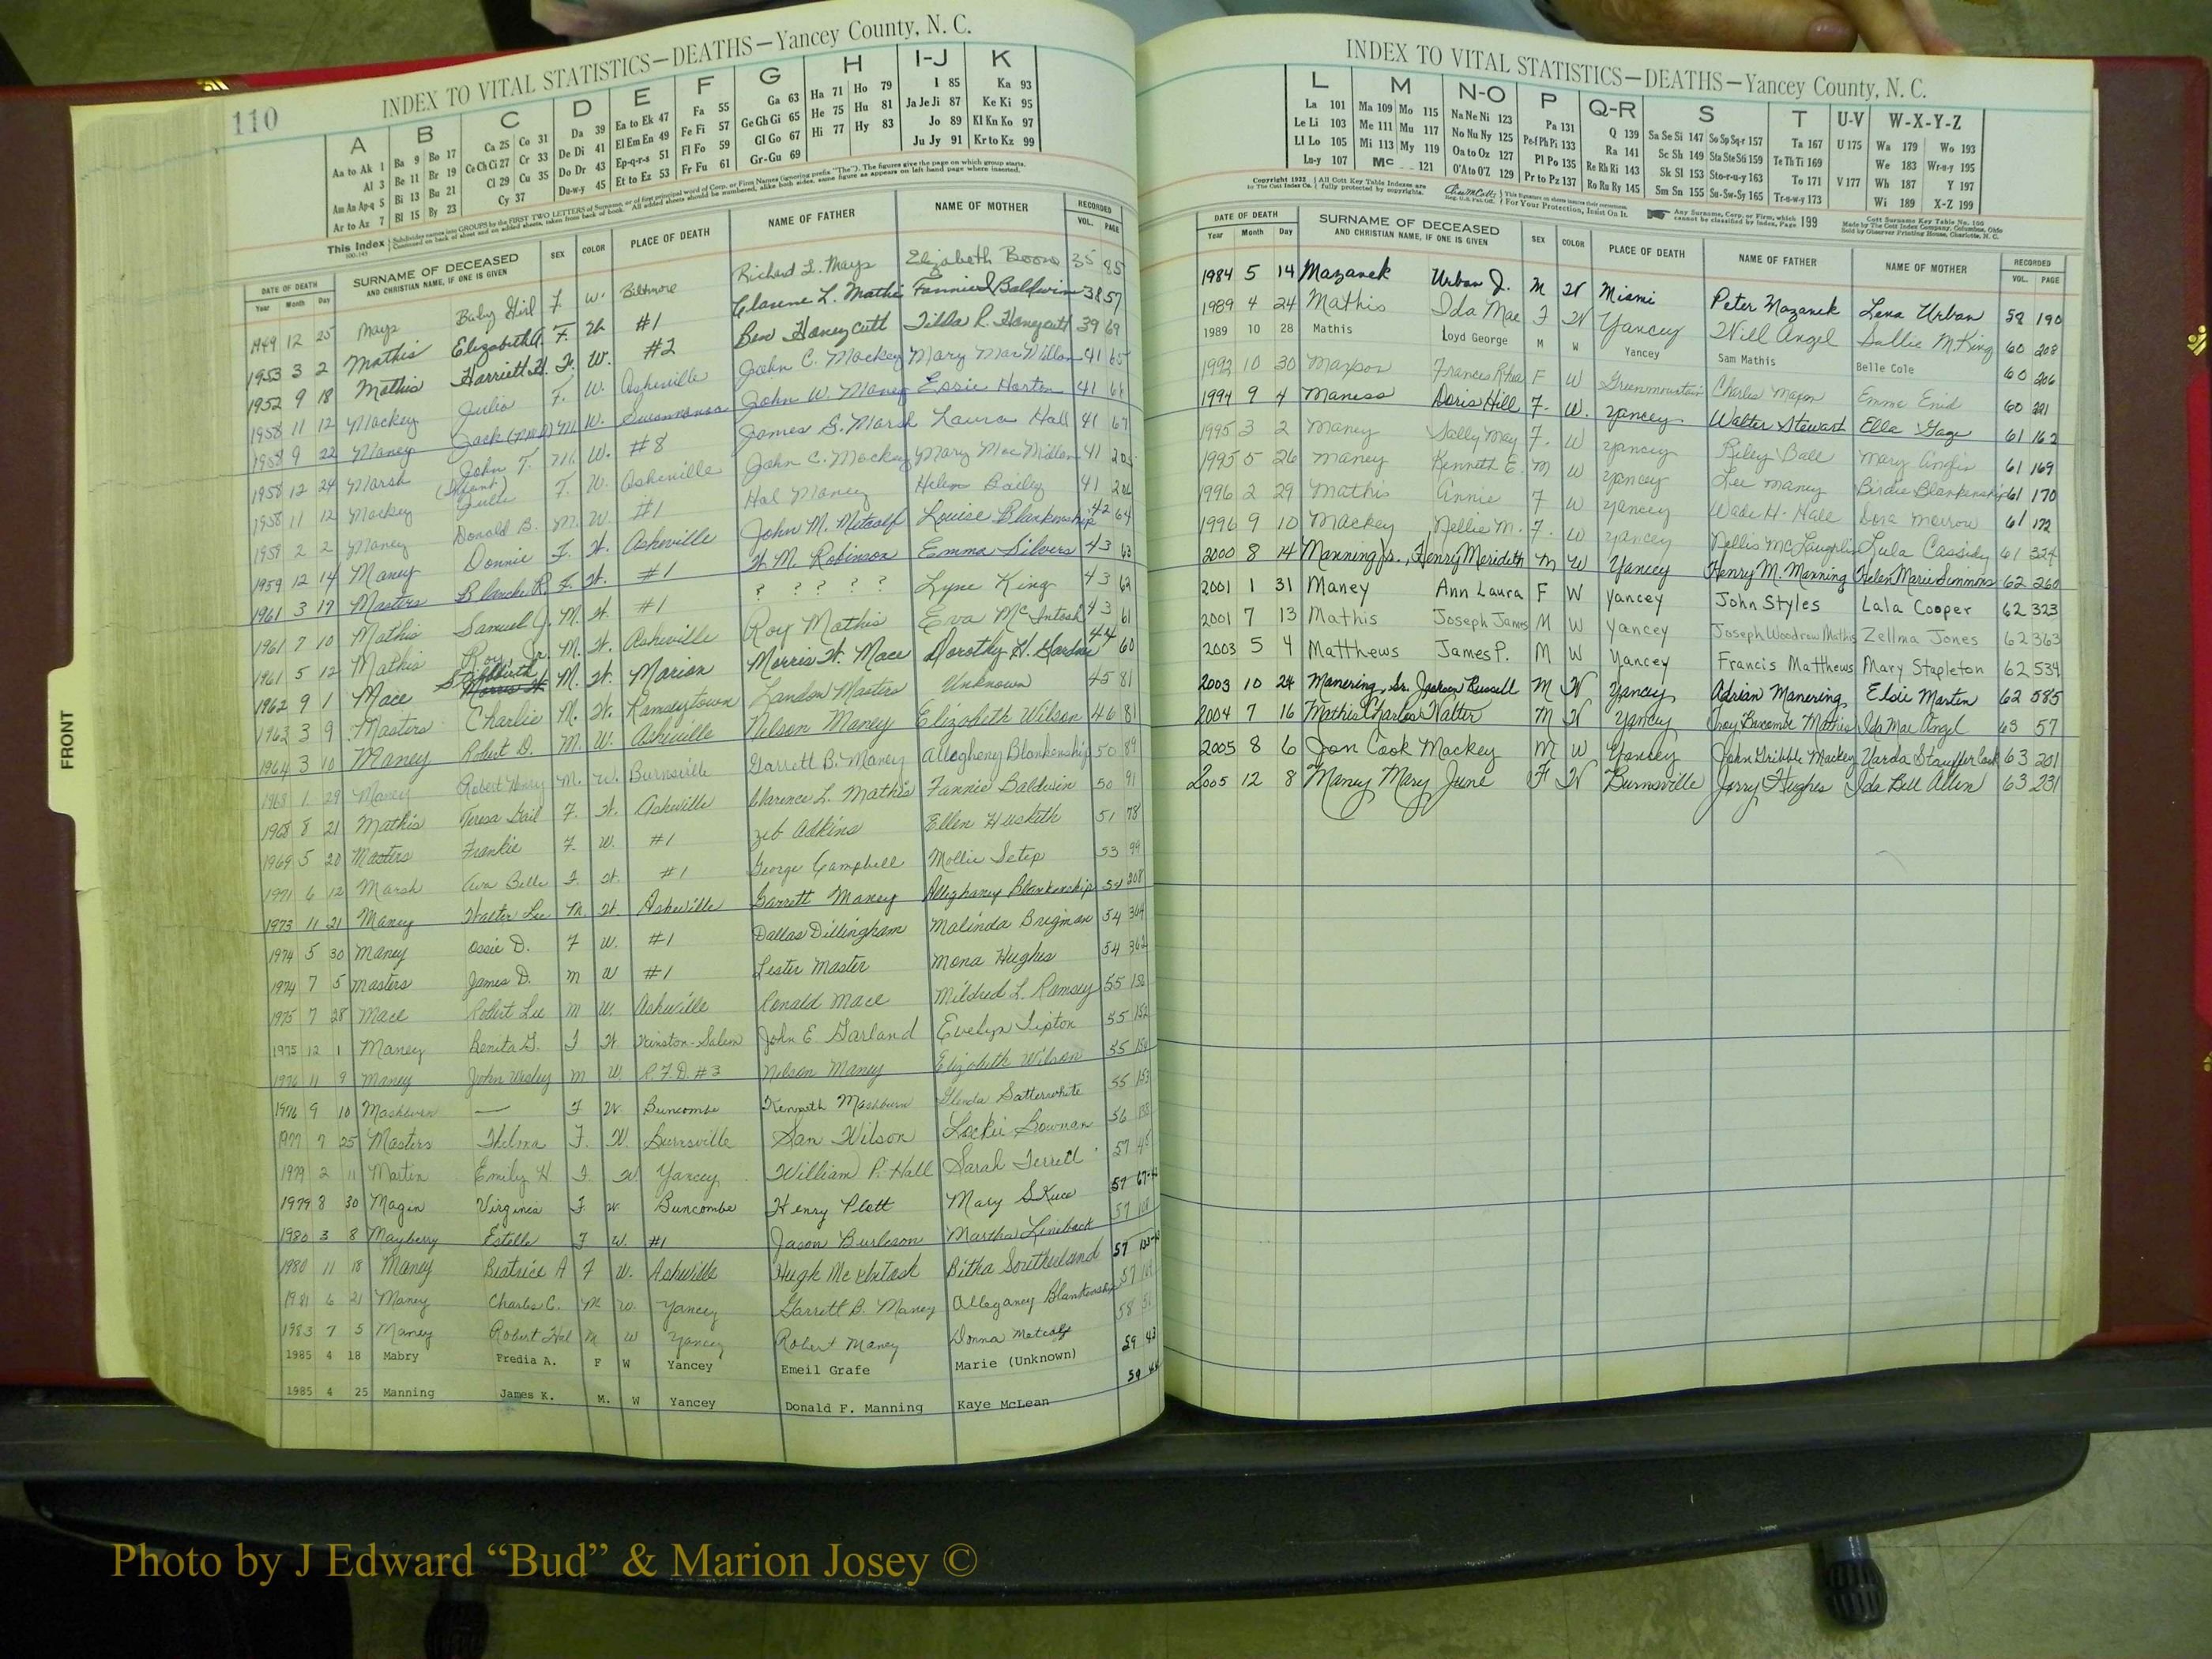 110
INDEX TO VITAL STATISTICS—DEATHS—Yancey County, N. C.
A B C D E F G H I-J K
Aa to Ak 1 Ba 9 Bo 17 Ca 25 Co 31 Da 39 Ea to Ek 47 Fa 55 Ga 63 Ha 71 Ho 79 I 85 Ka 93
Al 3 Be 11 Br 19 Ce Ch Ci 27 Cr 33 De Di 41 El Em En 49 Fe Fi 57 Ge Gh Gi 65 He 75 Hu 81 Ja Je Ji 87 Ke Ki 95
Am An Ap-q 5 Bi 13 Bu 21 Cl 29 Cu 35 Do Dr 43 Ep-q-r-s 51 Fl Fo 59 Gl Go 67 Hi 77 Hy 83 Jo 89 Kl Kn Ko 97
Ar to Az 7 Bl 15 By 23 Cy 37 Du-w-y 45 Et to Ez 53 Fr Fu 61 Gr-Gu 69 Ju Jy 91 Kr to Kz 99
This Index
DATE OF DEATH SURNAME OF DECEASED SEX COLOR PLACE OF DEATH NAME OF FATHER NAME OF MOTHER RECORDED
Year Month Day AND CHRISTIAN NAME, IF ONE IS GIVEN VOL. PAGE
1949 12 25 Mays Baby Girl F. W. Biltmore Richard L. Mays Elizabeth Boone 35 85
1953 3 2 Mathis Elizabeth A. F. W. #1 Clarene L. Mathis Fannie Baldwin 38 57
1952 9 18 Mathis Harriett H. F. W. #2 Ben Honeycutt Tilda R. Honeycutt 39 69
1958 11 12 Mackey Julia F. W. Asheville John C. Mackey Mary MacMillon 41 65
1958 9 22 Maney Jack M. W. Swannanoa John W. Maney Essie Horton 41 66
1958 12 24 Marsh John T. M. W. #8 James S. Marsh Laura Hall 41 67
1958 11 12 Mackey (Infant) Julie F. W. Asheville John C. Mackey Mary MacMillon 41 205
1958 2 2 Maney Donald B. M. W. #1 Hal Maney Helen Bailey 41 206
1959 12 14 Maney Donnie F. W. Asheville John M. Metcalf Louise Blankenship 42 64
1961 3 17 Masters Blanche R. F. W. #1 W. M. Robinson Emma Silvers 43 63
1961 7 10 Mathis Samuel J. M. W. #1 ? ? ? ? ? Lyne King 43 62
1961 5 12 Mathis Roy, Jr. M. W. Asheville Roy Mathis Eva McIntosh 43 61
1962 9 1 Mace Stillbirth M. W. Marion Morris W. Mace Dorothy H. 44 60
1963 3 9 Masters Charlie M. W. Ramseytown Landon Masters Unknown 45 81
1964 3 10 Maney Robert D. M. W. Asheville Nelson Maney Elizabeth Wilson 46 81
1968 1 29 Maney Robert Henry M. W. Burnsville Garrett B. Maney Allegheny Blankenship 50 89
1968 8 21 Mathis Teresa Gail F. W. Asheville Clarence L. Mathis Fannie Baldwin 50 91
1969 5 20 Masters Frankie F. W. #1 Zeb Adkins Ellen Husketh 51 78
1971 6 12 Marsh Ava Belle F. W. #1 George Campbell Mollie 53 99
1973 11 21 Maney Walter Lee M. W. Asheville Garrett Maney Alleghaney Blankenship 54 208
1974 5 30 Maney Ossie D. F W. #1 Dallas Dillingham Malinda Brigman 54 364
1974 7 5 Masters James D. M W #1 Lester Master Mona Hughes 54 362
1975 7 28 Mace Robert Lee M W. Asheville Ronald Mace Mildred L. Ramsey 55 150
1975 12 1 Maney Benita G. F W Winston-Salem John E Garland Evelyn Tipton 55 152
1976 11 9 Maney John Wesley M W. R.F.D. #3 Nelson Maney Elizabeth Wilson 55
1976 9 10 Mashburn — F W Buncombe Kenneth Mashburn Glenda Satterwhite 55 153
1977 7 25 Masters Thelma F. W. Burnsville Sam Wilson Lockie Bowman 56
1979 2 11 Martin Emily H F W Yancey William P. Hall Sarah Terrell 57
1979 8 30 Magin Virginia F W Buncombe Henry Plott Mary S Kuce 57
1980 3 8 Mayberry Estelle F W. #1 Jason Burleson Martha Lineback 57
1980 11 18 Maney Beatrice A F W. Asheville Hugh McIntosh Bitha Southerland 57
1981 6 21 Maney Charles C. M W. Yancey Garrett B. Maney Alleganey Blankenship 57
1983 7 5 Maney Robert Hal M W Yancey Robert Maney Donna Metcalf 58
1985 4 18 Mabry Fredia A. F W Yancey Emeil Grafe Marie (Unknown) 59 43
1985 4 25 Manning James K. M. W Yancey Donald F. Manning Kaye McLean 59 44
FRONT
INDEX TO VITAL STATISTICS—DEATHS—Yancey County, N. C.
L M N-O P Q-R S T U-V W-X-Y-Z
La 101 Ma 109 Mo 115 Na Ne Ni 123 Pa 131 Q 139 Sa Se Si 147 So Sp Sq-r 157 Ta 167 U 175 Wa 179 Wo 193
Le Li 103 Me 111 Mu 117 No Nu Ny 125 Pe-f Ph Pi 133 Ra 141 Sc Sh 149 Sta Ste Sti 159 Te Th Ti 169 We 183 Wr-u-y 195
Ll Lo 105 Mi 113 My 119 Oa to Oz 127 Pl Po 135 Re Rh Ri 143 Sk Sl 153 Sto-r-u-y 163 To 171 V 177 Wh 187 Y 197
Lu-y 107 Mc 121 O'A to O'Z 129 Pr to Pz 137 Ro Ru Ry 145 Sm Sn 155 Su-Sw-Sy 165 Tr-u-w-y 173 Wi 189 X-Z 199
DATE OF DEATH SURNAME OF DECEASED SEX COLOR PLACE OF DEATH NAME OF FATHER NAME OF MOTHER RECORDED
Year Month Day AND CHRISTIAN NAME, IF ONE IS GIVEN VOL. PAGE
1984 5 14 Mazanek Urban J. M W Miami Peter Mazanek Lena Urban 58 190
1989 4 24 Mathis Ida Mae F W Yancey Will Angel Sallie McKing 60 208
1989 10 28 Mathis Loyd George M W Yancey Sam Mathis Belle Cole 60 206
1992 10 30 Maxson Frances Rhea F W Greenmountain Charles Emma Enid 60 221
1994 9 4 Maness Doris Hill F. W. Yancey Walter Stewart Ella Gage 61 162
1995 3 2 Maney Sally May F. W Yancey Riley Ball Mary Anglin 61 169
1995 5 26 Maney Kenneth E. M W Yancey Lee Maney Birdie Blankenship 61 170
1996 2 29 Mathis Annie F W Yancey Wade H. Hall Dora Morrow 61 172
1996 9 10 Mackey Nellie M. F. W Yancey Nellis McLaughlin Lula Cassidy 61 324
2000 8 14 Manning Jr., Henry Meredith M W Yancey Henry M. Manning Helen Marie Simmons 62 260
2001 1 31 Maney Ann Laura F W Yancey John Styles Lala Cooper 62 323
2001 7 13 Mathis Joseph James M W Yancey Joseph Woodrow Mathis Zellma Jones 62 363
2003 5 4 Matthews James P. M W Yancey Francis Matthews Mary Stapleton 62 534
2003 10 24 Manering, Sr. Jackson Russell M W Yancey Adrian Manering Elsie Marten 62 585
2004 7 16 Mathis Charles Walter M W Yancey Troy Buscombe Mathis Ida Mae Angel 63 57
2005 8 6 Jon Cook Mackey M W Yancey John Gribble Mackey Varda Stauffer Cook 63 201
2005 12 8 Maney Mary June F W Burnsville Jerry Hughes Ida Bell Allen 63 231
Photo by J Edward “Bud” & Marion Josey ©